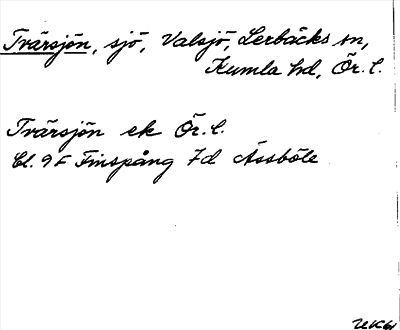 Tvärsjön, sjö, Valsjö, Lerbäcks sn,
Kumla hd, Ör. l.
Tvärsjön ek Ör. l.
Bl. 9F Finspång 7d Åssböle